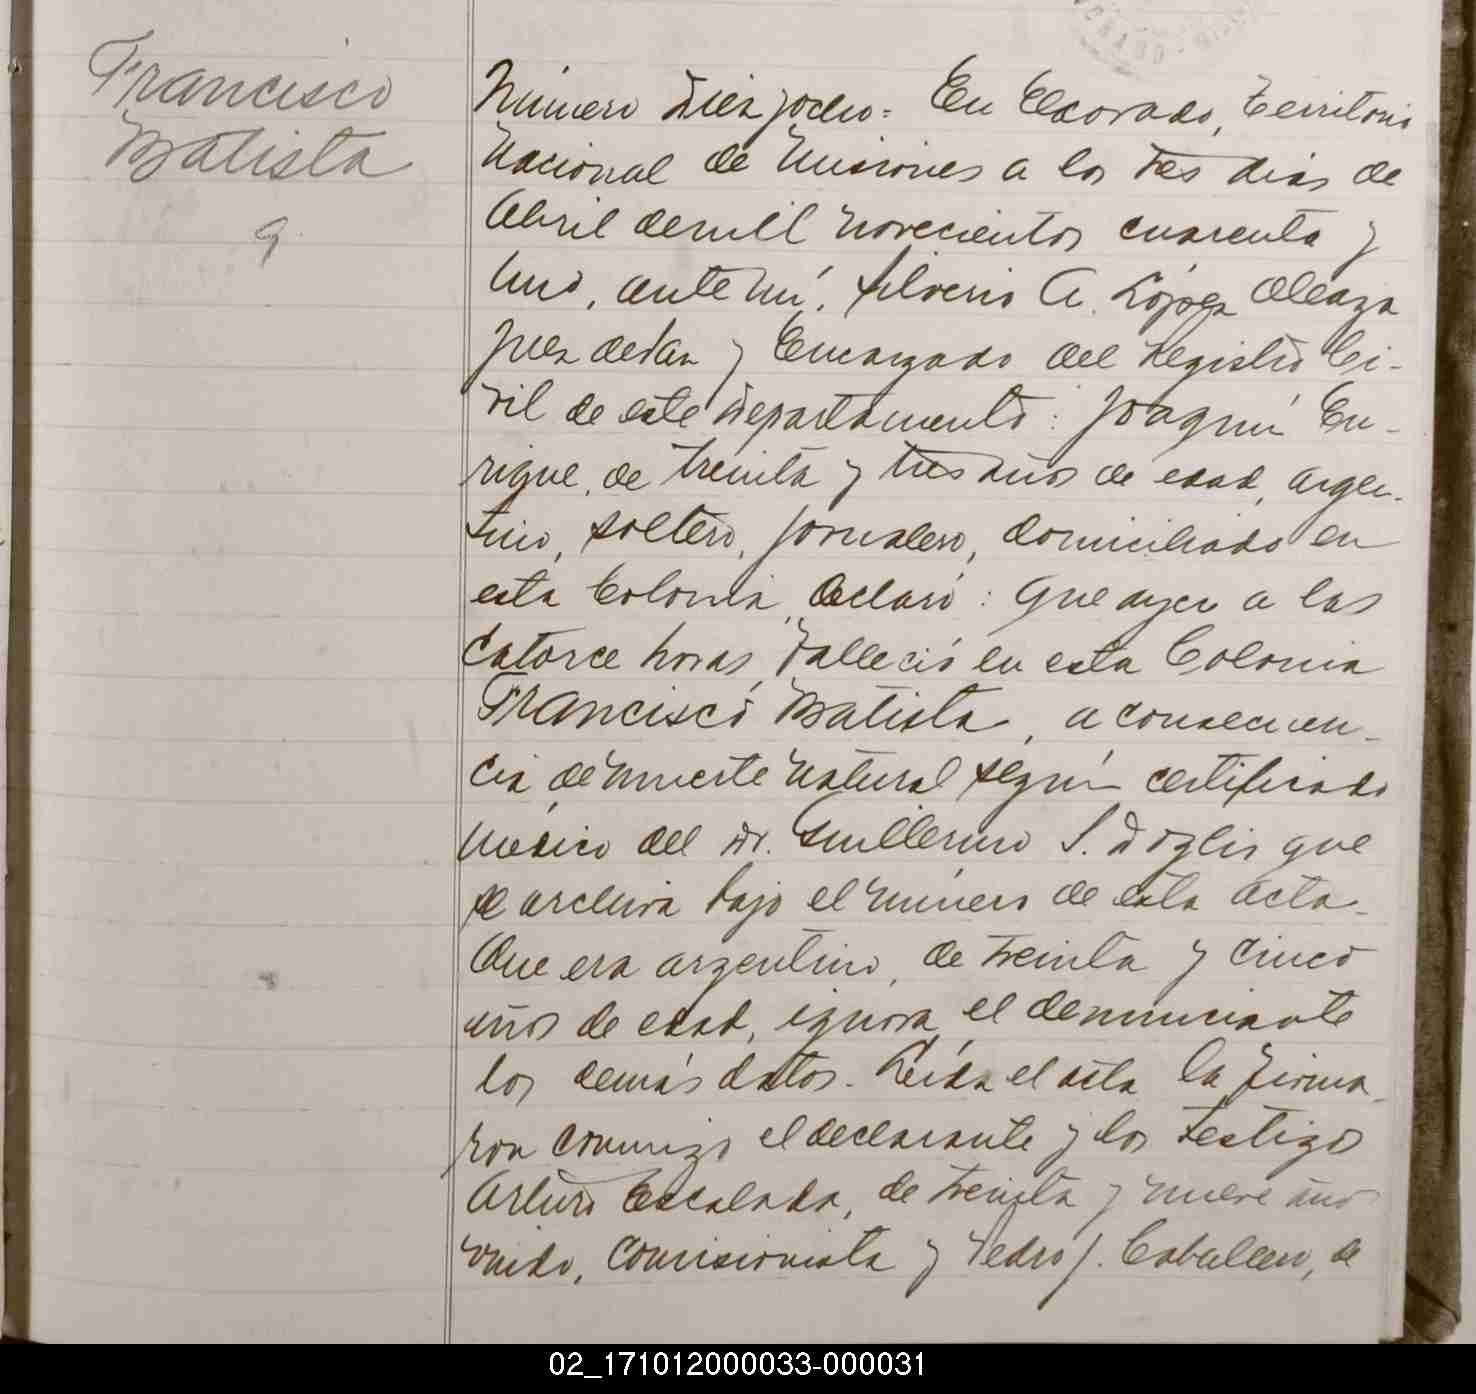 Francisco
Batista
9.
Número Diez y ocho = En Eldorado, Territorio
Nacional de Misiones a los tres dias de
Abril de mil novecientos cuarenta y
uno, ante mí, Silverio A. López Aleaga
Juez de Paz y Encargado del Registro Ci-
vil de este Departamento: Joaquín En-
rique, de treinta y tres años de edad, argen-
tino, soltero, jornalero, domiciliado en
esta Colonia, declaró: Que ayer a las
catorce horas, falleció en esta Colonia
Francisco Batista, a consecuen-
cia de muerte natural según certificado
médico del Dr. Guillermo S. que
se archiva bajo el número de esta acta.
Que era argentino, de treinta y cinco
años de edad, ignora el denunciante
los demás datos. Leída el acta la firma-
ron conmigo el declarante y los testigos
Arturo Escalada, de treinta y nueve años
viudo, comisionista y Pedro J. Caballero, de
02_171012000033-000031